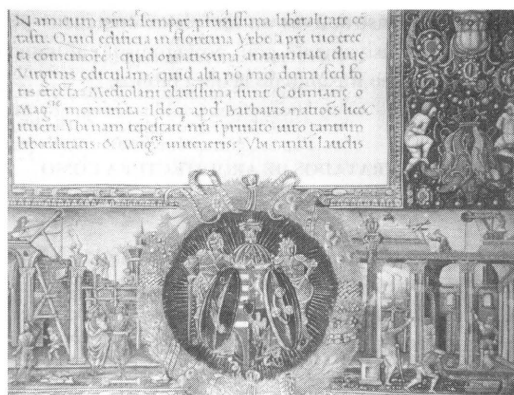 Nam cum prima semper piissima liberalitate cē
tasti. Quid edificia in floretina Vrbe a pre tuo erec
ta comemorē quid ornatissimā anuntiate diue
Virginis ediculam: quid alia nō mo domi sed fo
ris erecta: Mediolani clarissima sunt Cosmiane
Mag^cie monimta: Ide q, apd Barbaras natiōes lice
itueri. Vbi nam tepestate nra i priuato uiro tantum
liberalitatis & Mag^cie inueneris: Vbi tantū laudis